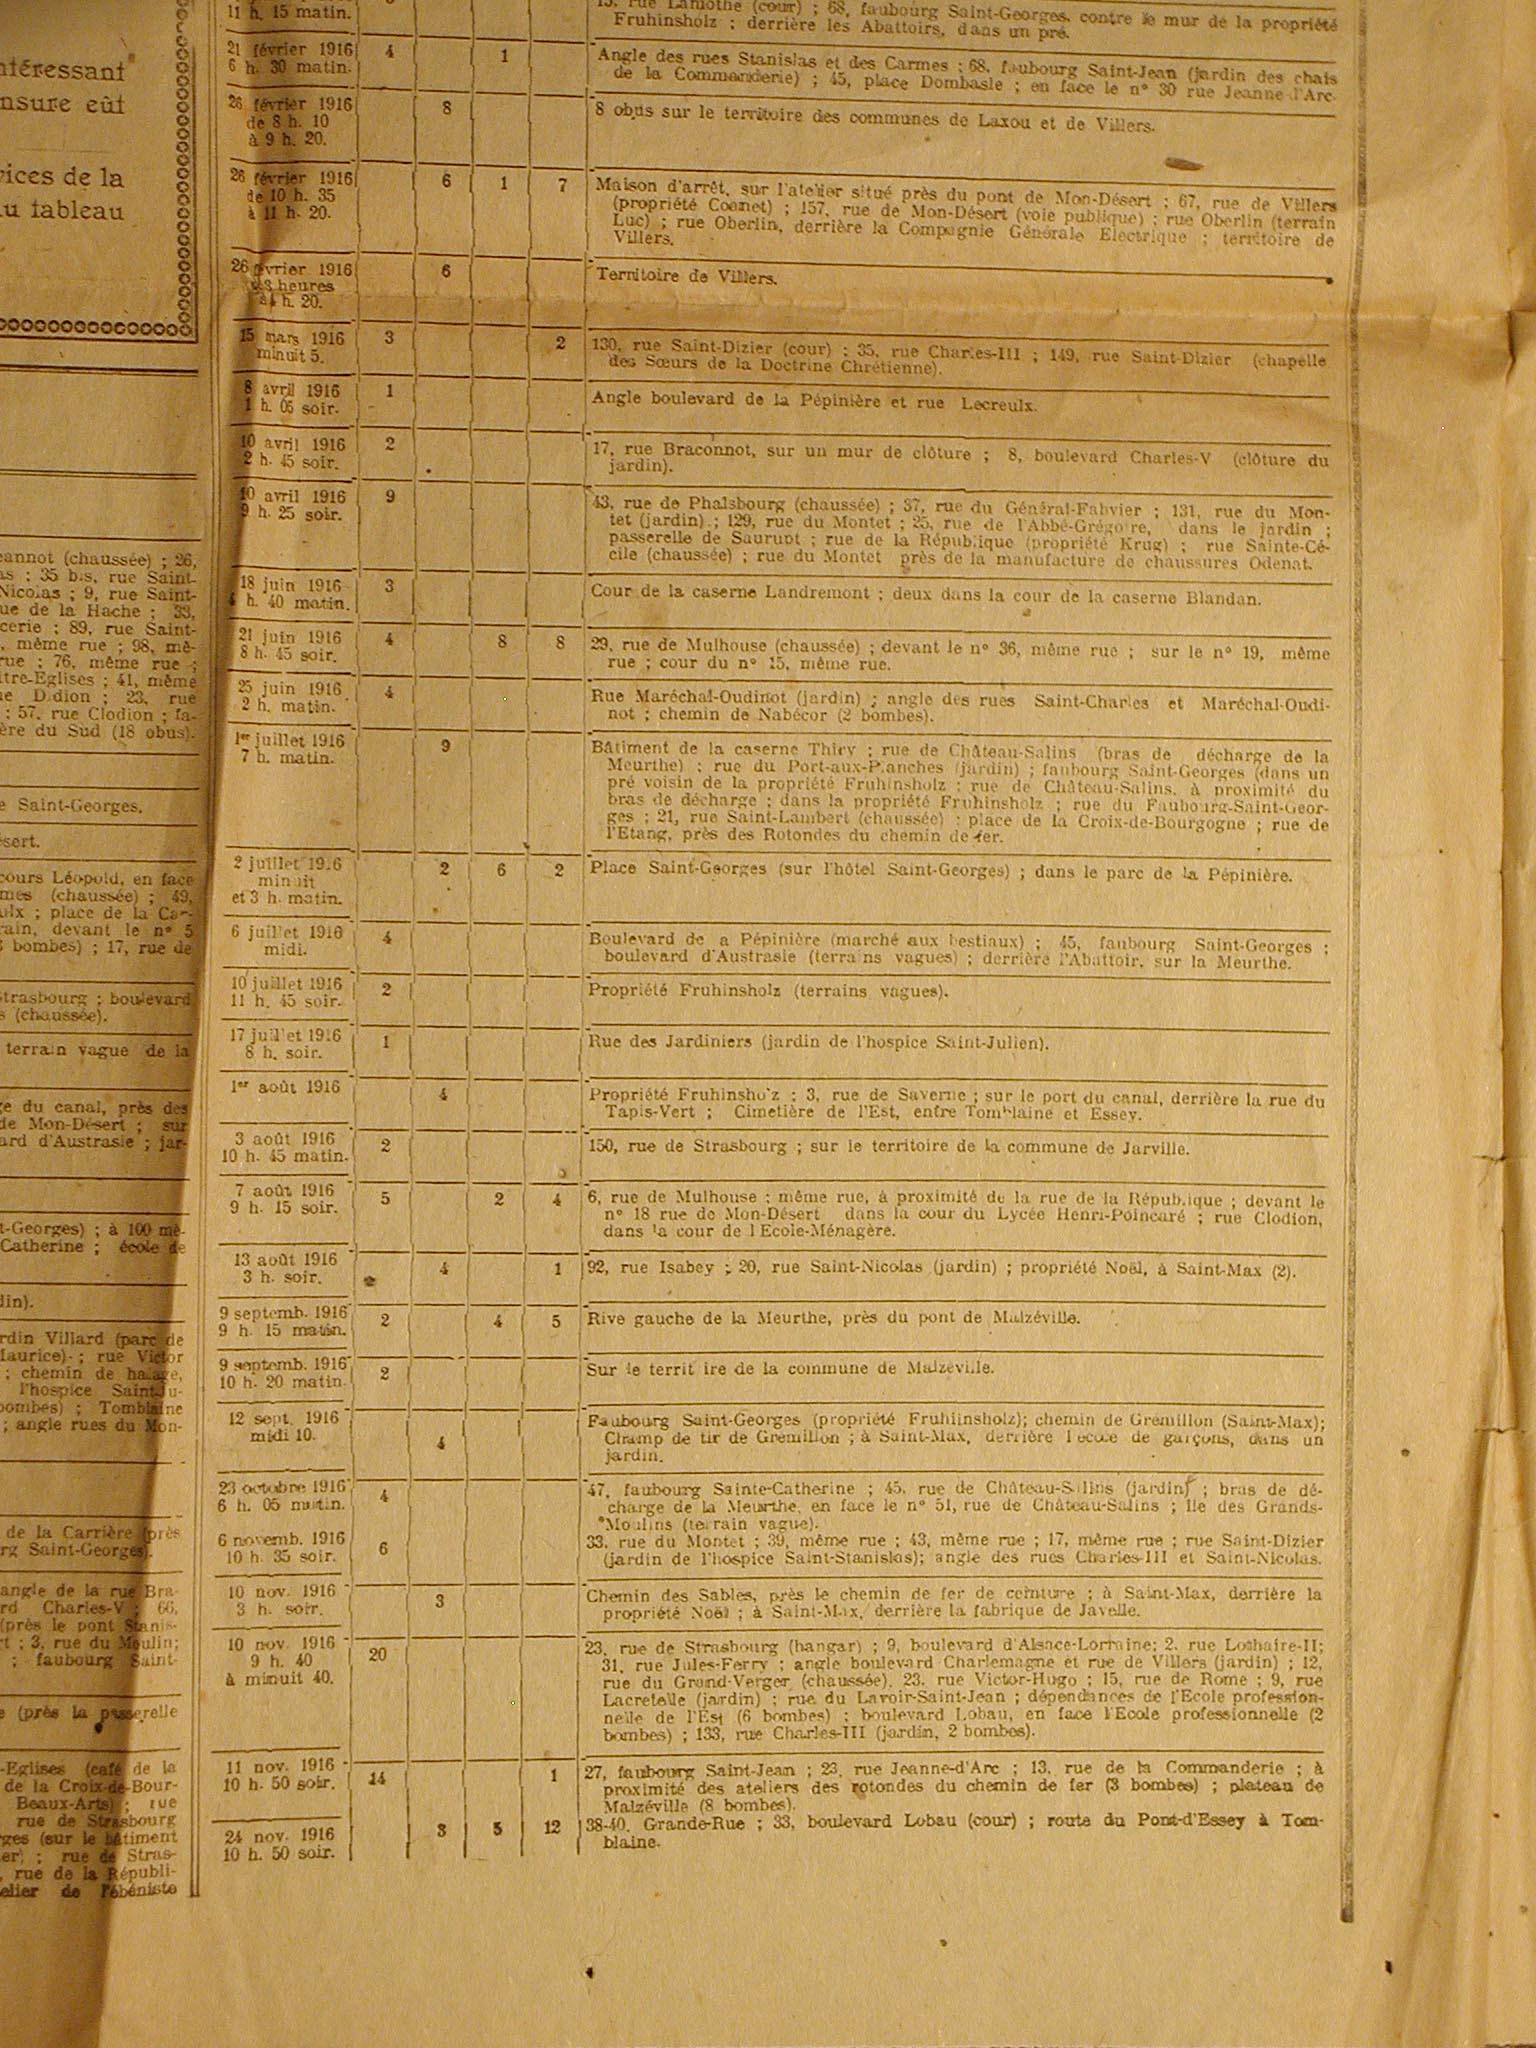 ntéressant
nsure eût
vices de la
au tableau
eannot (chaussée) ; 26,
as ; 35 bis, rue Saint-
Nicolas ; 9, rue Saint-
ue de la Hache ; 33,
cerie ; 89, rue Saint-
, même rue ; 98, mê-
rue ; 76, même rue ;
tre-Eglises ; 41, même
ue Didion ; 23, rue
; 57, rue Clodion ; fa-
ère du Sud (18 obus).
e Saint-Georges.
ésert.
cours Léopold, en face
mes (chaussée) ; 49,
ulx ; place de la Car-
rain, devant le n° 5
3 bombes) ; 17, rue de
Strasbourg ; boulevard
s (chaussée).
terrain vague de la
ge du canal, près des
de Mon-Désert ; sur
ard d'Austrasie ; jar-
t-Georges) ; à 100 mè-
Catherine ; école de
din).
rdin Villard (parc de
Maurice) ; rue Victor
; chemin de halage,
l'hospice Saint-Ju-
bombes) ; Tomblaine
; angle rues du Mon-
de la Carrière (près
rg Saint-Georges).
angle de la rue Bra-
rd Charles-V ; 66,
(près le pont Stanis-
rt ; 3, rue du Moulin;
; faubourg Saint-
e (près la passerelle
-Eglises (café de la
de la Croix-de-Bour-
Beaux-Arts) ; rue
rue de Strasbourg
ges (sur le bâtiment
er) ; rue de Stras-
, rue de la Républi-
elier de l'ébéniste
11 h. 15 matin.
15, rue Lamothe (cour) ; 68, faubourg Saint-Georges, contre le mur de la propriété
Fruhinsholz ; derrière les Abattoirs, dans un pré.
21 février 1916 4 1 Angle des rues Stanislas et des Carmes ; 68, faubourg Saint-Jean (jardin des chais
6 h. 30 matin. de la Commanderie) ; 45, place Dombasle ; en face le n° 30 rue Jeanne-d'Arc.
26 février 1916 8 8 obus sur le territoire des communes de Laxou et de Villers.
de 8 h. 10
à 9 h. 20.
26 février 1916 6 1 7 Maison d'arrêt, sur l'atelier situé près du pont de Mon-Désert ; 67, rue de Villers
de 10 h. 35 (propriété Cosnet) ; 157, rue de Mon-Désert (voie publique) ; rue Oberlin (terrain
à 11 h. 20. Luc) ; rue Oberlin, derrière la Compagnie Générale Electrique ; territoire de
Villers.
26 février 1916 6 Territoire de Villers.
3 heures
h. 20.
15 mars 1916 3 2 130, rue Saint-Dizier (cour) ; 35, rue Charles-III ; 149, rue Saint-Dizier (chapelle
minuit 5. des Sœurs de la Doctrine Chrétienne).
8 avril 1916 1 Angle boulevard de la Pépinière et rue Lecreulx.
1 h. 05 soir.
10 avril 1916 2 17, rue Braconnot, sur un mur de clôture ; 8, boulevard Charles-V (clôture du
2 h. 45 soir. jardin).
10 avril 1916 9 43, rue de Phalsbourg (chaussée) ; 37, rue du Général-Fabvier ; 131, rue du Mon-
9 h. 25 soir. tet (jardin) ; 129, rue du Montet ; 25, rue de l'Abbé-Grégoire, dans le jardin ;
passerelle de Saurupt ; rue de la République (propriété Krug) ; rue Sainte-Cé-
cile (chaussée) ; rue du Montet près de la manufacture de chaussures Odenat.
18 juin 1916 3 Cour de la caserne Landremont ; deux dans la cour de la caserne Blandan.
4 h. 40 matin.
21 juin 1916 4 8 8 29, rue de Mulhouse (chaussée) ; devant le n° 36, même rue ; sur le n° 19, même
8 h. 45 soir. rue ; cour du n° 15, même rue.
25 juin 1916 4 Rue Maréchal-Oudinot (jardin) ; angle des rues Saint-Charles et Maréchal-Oudi-
2 h. matin. not ; chemin de Nabécor (2 bombes).
1er juillet 1916 9 Bâtiment de la caserne Thiry ; rue de Château-Salins (bras de décharge de la
7 h. matin. Meurthe) ; rue du Port-aux-Planches (jardin) ; faubourg Saint-Georges (dans un
pré voisin de la propriété Fruhinsholz ; rue de Château-Salins, à proximité du
bras de décharge ; dans la propriété Fruhinsholz ; rue du Faubourg-Saint-Geor-
ges ; 21, rue Saint-Lambert (chaussée) ; place de la Croix-de-Bourgogne ; rue de
l'Etang, près des Rotondes du chemin de fer.
2 juillet 1916 2 6 2 Place Saint-Georges (sur l'hôtel Saint-Georges) ; dans le parc de la Pépinière.
minuit
et 3 h. matin.
6 juillet 1916 4 Boulevard de la Pépinière (marché aux bestiaux) ; 45, faubourg Saint-Georges ;
midi. boulevard d'Austrasie (terrains vagues) ; derrière l'Abattoir, sur la Meurthe.
10 juillet 1916 2 Propriété Fruhinsholz (terrains vagues).
11 h. 45 soir.
17 juillet 1916 1 Rue des Jardiniers (jardin de l'hospice Saint-Julien).
8 h. soir.
1er août 1916 4 Propriété Fruhinsholz ; 3, rue de Saverne ; sur le port du canal, derrière la rue du
Tapis-Vert ; Cimetière de l'Est, entre Tomblaine et Essey.
3 août 1916 2 150, rue de Strasbourg ; sur le territoire de la commune de Jarville.
10 h. 45 matin.
7 août 1916 5 2 4 6, rue de Mulhouse ; même rue, à proximité de la rue de la République ; devant le
9 h. 15 soir. n° 18 rue de Mon-Désert dans la cour du Lycée Henri-Poincaré ; rue Clodion,
dans la cour de l'Ecole-Ménagère.
13 août 1916 4 1 92, rue Isabey ; 20, rue Saint-Nicolas (jardin) ; propriété Noël, à Saint-Max (2).
3 h. soir.
9 septemb. 1916 2 4 5 Rive gauche de la Meurthe, près du pont de Malzéville.
9 h. 15 matin.
9 septemb. 1916 2 Sur le territ ire de la commune de Malzéville.
10 h. 20 matin.
12 sept. 1916 4 Faubourg Saint-Georges (propriété Fruhiinsholz); chemin de Grémillon (Saint-Max);
midi 10. Champ de tir de Grémillon ; à Saint-Max, derrière l'école de garçons, dans un
jardin.
23 octobre 1916 4 47, faubourg Sainte-Catherine ; 45, rue de Château-Salins (jardin) ; bras de dé-
6 h. 05 matin. charge de la Meurthe, en face le n° 51, rue de Château-Salins ; île des Grands-
Moulins (terrain vague).
6 novemb. 1916 6 33, rue du Montet ; 39, même rue ; 43, même rue ; 17, même rue ; rue Saint-Dizier
10 h. 35 soir. (jardin de l'hospice Saint-Stanislas); angle des rues Charles-III et Saint-Nicolas.
10 nov. 1916 3 Chemin des Sables, près le chemin de fer de ceinture ; à Saint-Max, derrière la
3 h. soir. propriété Noël ; à Saint-Max, derrière la fabrique de Javelle.
10 nov. 1916 20 23, rue de Strasbourg (hangar) ; 9, boulevard d'Alsace-Lorraine; 2, rue Lothaire-II;
9 h. 40 31, rue Jules-Ferry ; angle boulevard Charlemagne et rue de Villers (jardin) ; 12,
à minuit 40. rue du Grand-Verger (chaussée), 23, rue Victor-Hugo ; 15, rue de Rome ; 9, rue
Lacretelle (jardin) ; rue du Lavoir-Saint-Jean ; dépendances de l'Ecole profession-
nelle de l'Est (6 bombes) ; boulevard Lobau, en face l'Ecole professionnelle (2
bombes) ; 133, rue Charles-III (jardin, 2 bombes).
11 nov. 1916 14 1 27, faubourg Saint-Jean ; 23, rue Jeanne-d'Arc ; 13, rue de la Commanderie ; à
10 h. 50 soir. proximité des ateliers des rotondes du chemin de fer (3 bombes) ; plateau de
Malzéville (8 bombes).
24 nov. 1916 3 5 12 38-40, Grande-Rue ; 33, boulevard Lobau (cour) ; route du Pont-d'Essey à Tom-
10 h. 50 soir. blaine.